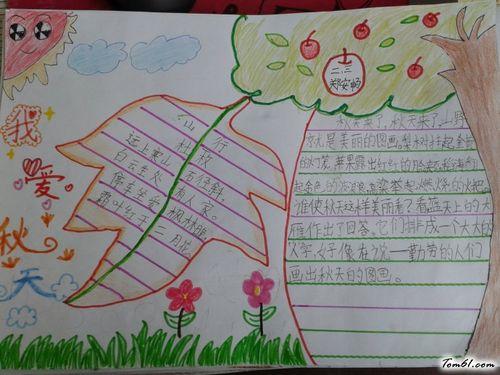 我
爱
秋
天
山行
杜牧
远上寒山石径斜,
白云生处有人家。
停车坐爱枫林晚,
霜叶红于二月花。
二、三
郑安畅
秋天来了,秋天来了,山野
就是美丽的图画。梨树挂起金黄
的灯笼,苹果露出红红的脸颊,稻海翻
起金色的波浪,高粱举起燃烧的火把。
谁使秋天这样美丽?看,蓝天上的大
雁作出了回答,它们排成一个大大的
人字,好像在说——勤劳的人们
画出秋天的图画。
Tom61.com